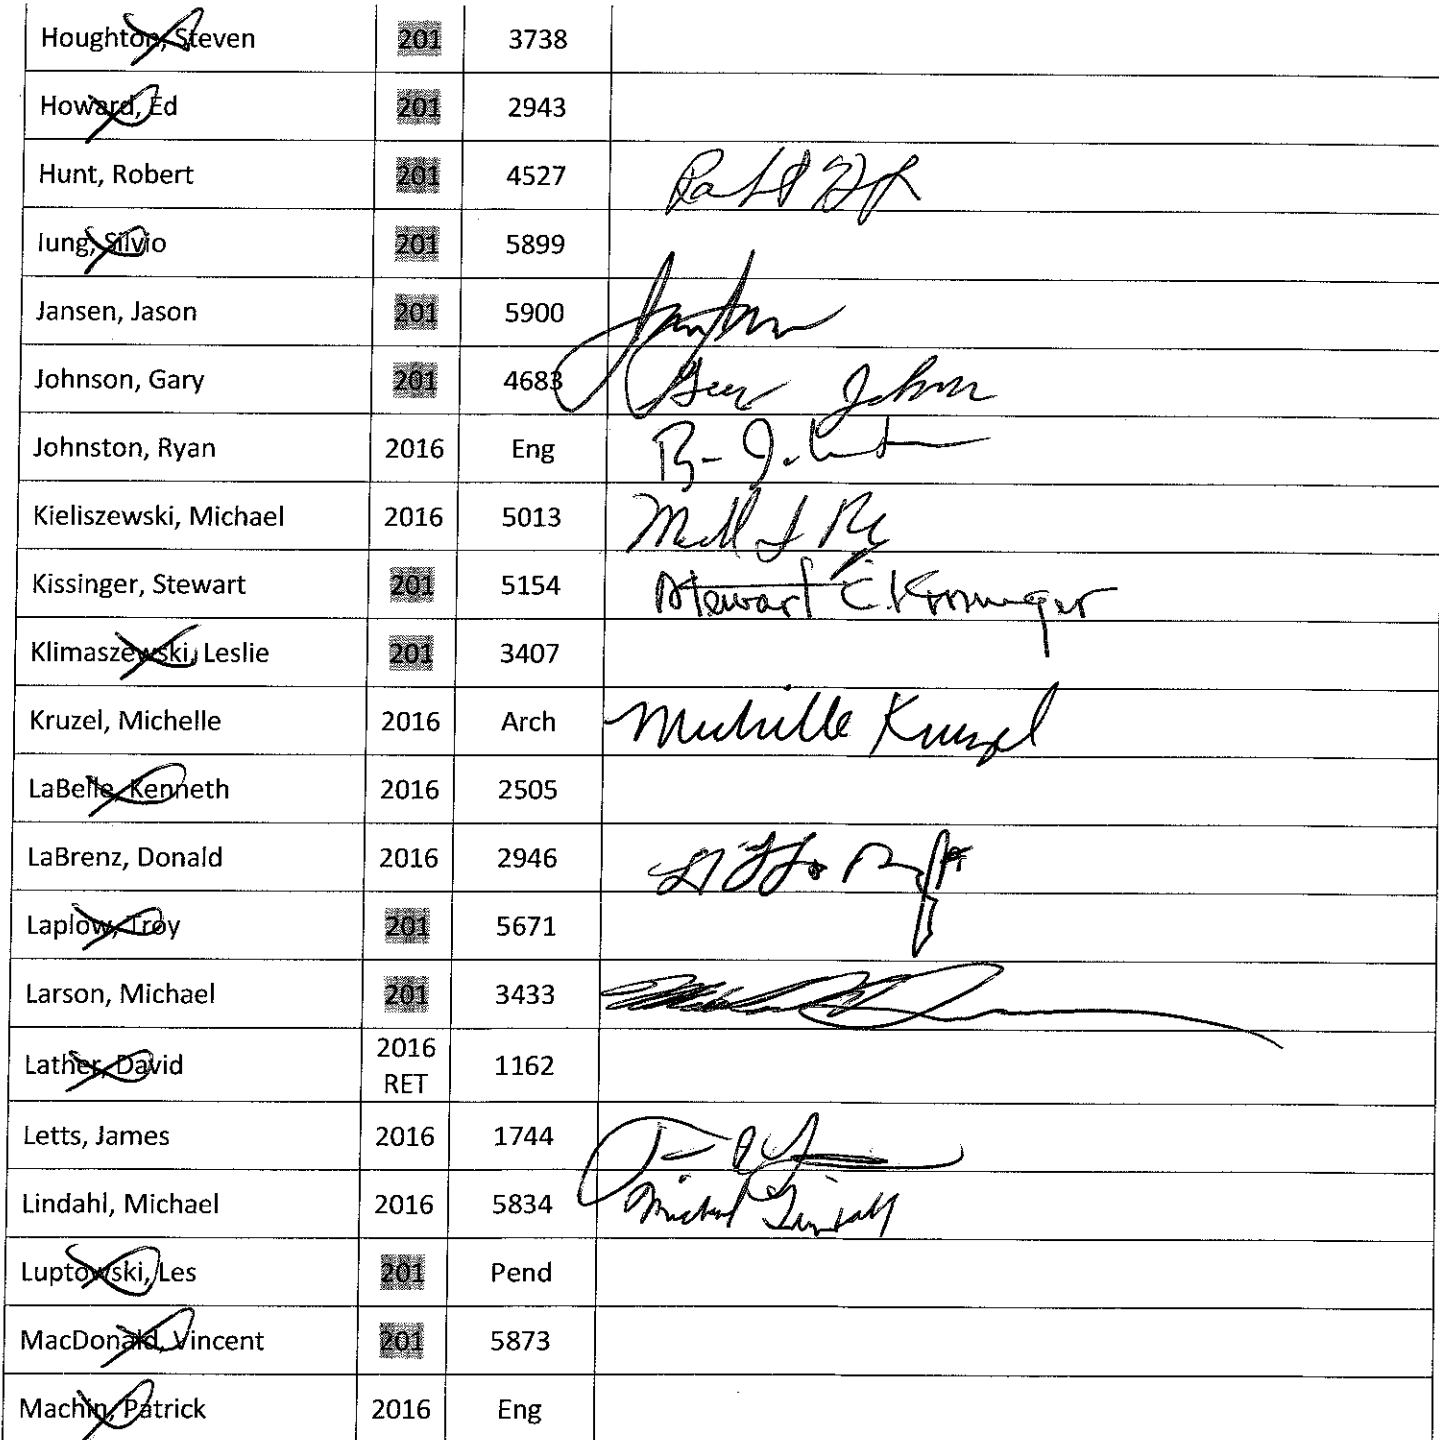 Houghton, Steven 201 3738
Howard, Ed 201 2943
Hunt, Robert 201 4527
Iung, Silvio 201 5899
Jansen, Jason 201 5900
Johnson, Gary 201 4683 Johnson
Johnston, Ryan 2016 Eng
Kieliszewski, Michael 2016 5013
Kissinger, Stewart 201 5154 Stewart C. Kissinger
Klimaszewski, Leslie 201 3407
Kruzel, Michelle 2016 Arch Michelle Kruzel
LaBelle, Kenneth 2016 2505
LaBrenz, Donald 2016 2946
Laplow, Troy 201 5671
Larson, Michael 201 3433
Lather, David 2016 RET 1162
Letts, James 2016 1744
Lindahl, Michael 2016 5834 Michael Lindahl
Luptowski, Les 201 Pend
MacDonald, Vincent 201 5873
Machin, Patrick 2016 Eng